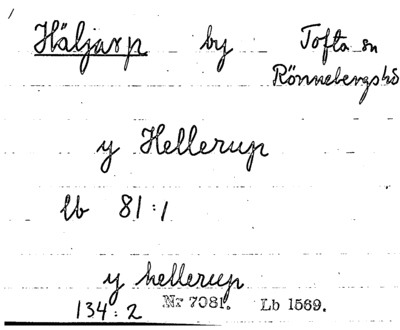 Häljarp by Tofta sn
Rönnebergs hd
y Hellerup
lb 81:1
y hellerup
134:2 Nr 7081. Lb 1569.